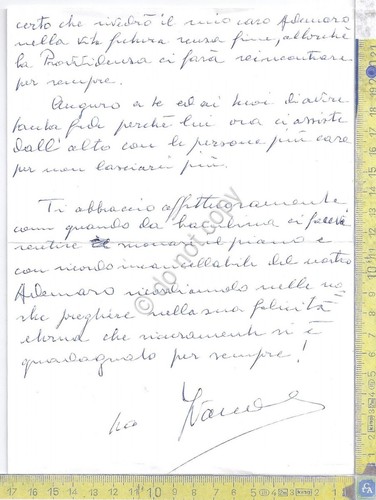 certo che rivedrò il mio caro Ademaro
nella vita futura senza fine, allorché
la Provvidenza ci farà rincontrare
per sempre.
Auguro a te ed ai tuoi di avere
tanta fede perché lui ora ci assiste
dall'alto con le persone più care
per non lasciarci più.
Ti abbraccio affettuosamente
come quando da bambina ci facevi
sentire suonare il piano e
con ricordo incancellabile del nostro
Ademaro ricordiamolo nelle no
stre preghiere nella sua felicità
eterna che sicuramente si è
guadagnato per sempre!
tua
© do not copy
17 16 15 14 13 12 11 10 9 8 7 6 5 4 3 2 1